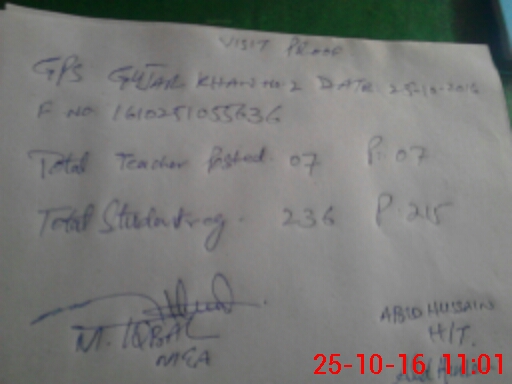 VISIT PROOF
GPS GUJAR KHAN NO 2 DATE 25-10-2016
F NO. 1610251055636
Total Teacher Posted. 07 P. 07
Total Student reg. 236 P. 215
M. IQBAL
MEA
ABID HUSSAIN
H/T.
25-10-16 11:01